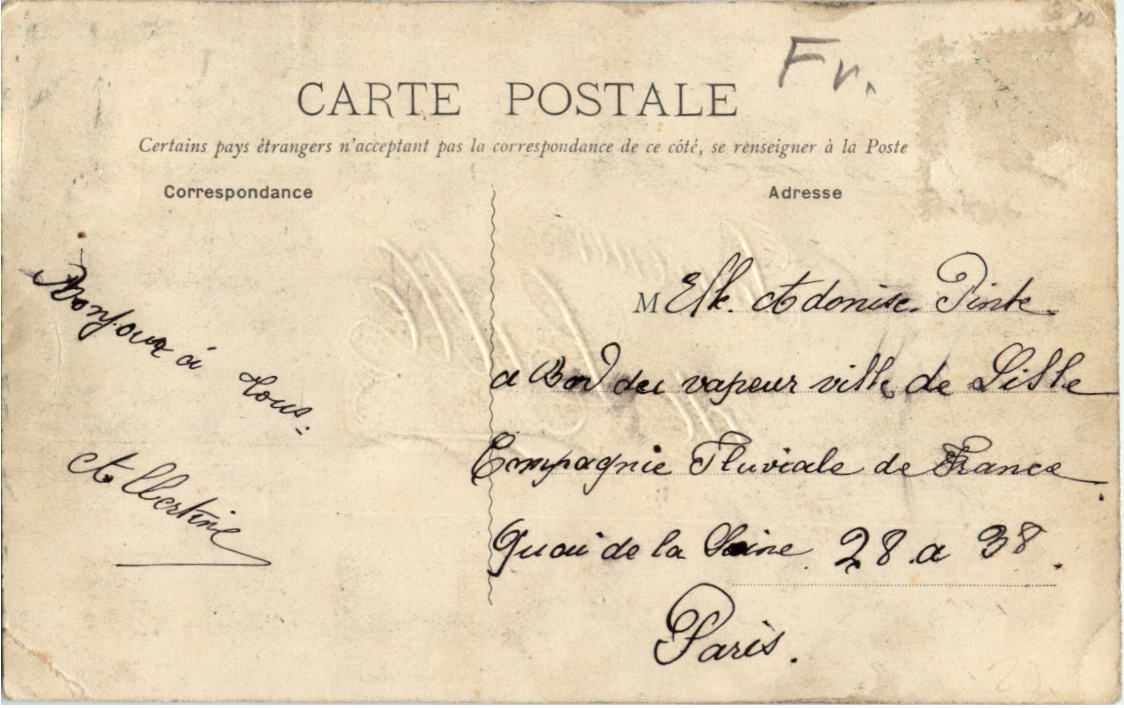 Fr.
CARTE POSTALE
Certains pays étrangers n'acceptant pas la correspondance de ce côté, se renseigner à la Poste
Correspondance
Adresse
Bonjour à
tous.
Albertine
M Elle Adonise Pinte
a Bord du vapeur ville de Lille
Compagnie Fluviale de France
Quai de la Seine 28 a 38.
Paris.